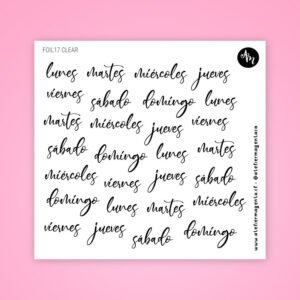 FOIL17 CLEAR
AM
lunes martes miércoles jueves
viernes sábado domingo lunes
martes miércoles jueves viernes
sábado domingo lunes martes
miércoles viernes jueves sábado
domingo lunes martes miércoles
viernes jueves sábado domingo
www.ateliermagenta.cl - @ateliermagenta